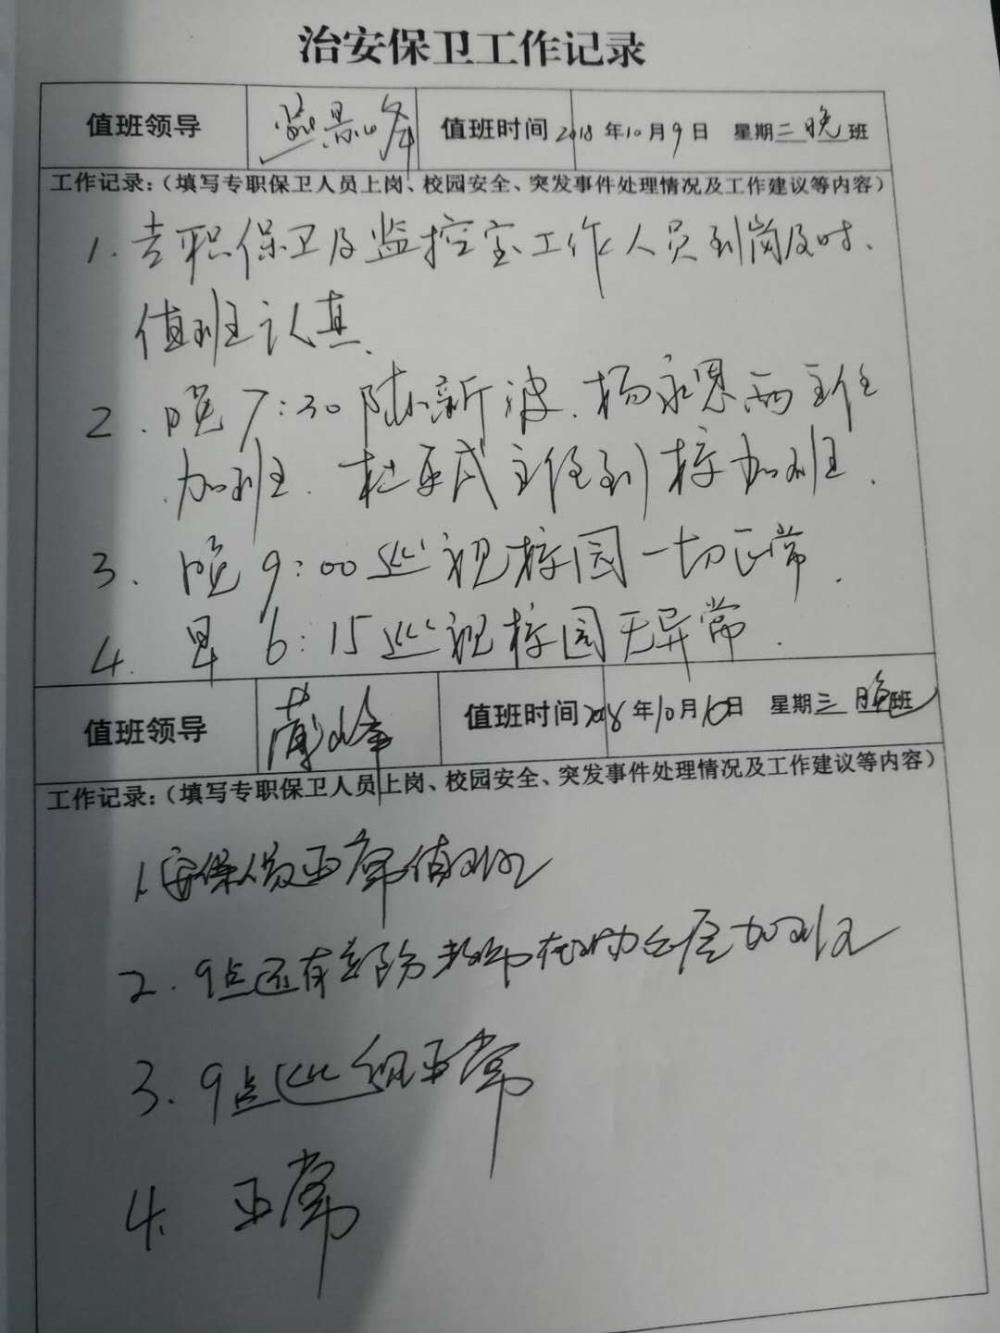 治安保卫工作记录
值班领导 值班时间 2018年10月9日 星期二晚班
工作记录：（填写专职保卫人员上岗、校园安全、突发事件处理情况及工作建议等内容）
1. 专职保卫及监控室工作人员到岗及时、
值班认真.
2. 晚7:30陆新波、杨永恩两主任
加班. 杜 武主任到校加班.
3. 晚9:00巡视校园一切正常.
4. 早6:15巡视校园无异常.
值班领导 峰 值班时间 2018年10月10日 星期三晚班
工作记录：（填写专职保卫人员上岗、校园安全、突发事件处理情况及工作建议等内容）
1. 安保人员正常值班
2. 9点还有部分教师在办公室加班
3. 9点巡视正常
4. 正常